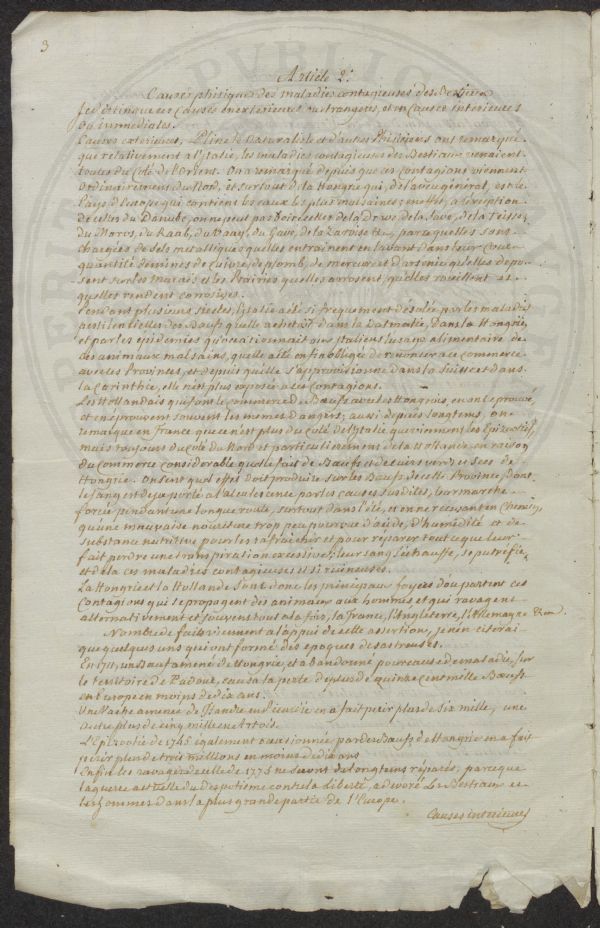 3
Article 2.
Causes phisiques des maladies contagieuses des Bestiaux
Je distingue ces causes en extérieures ou étrangeres, et en causes intérieures
ou immédiates.
Causes extérieures, Pline le Naturaliste et d'autres Phisiciens ont remarqué
que relativement a l'Italie, les maladies contagieuses des Bestiaux venaient
toutes du Coté de l'Orient. On a remarqué depuis que ces contagions viennent
ordinairement du Nord, et surtout de la Hongrie qui, de l'aveu général, est le
Pays d'Europe qui contient les eaux les plus malsaines; en effet, a l'exception
de celles du Danube, on ne peut pas boire celles de la Drave, de la Save, de la Teisse,
du Moros, du Raab, du Waag, du Gave, de la Zarwise &c. parce qu'elles sont
chargées de sels metalliques qu'elles entrainent en lavant dans leur Cours
quantité de mines de Cuivre, de plomb, de mercure et d'arsenic qu'elles dépo-
sent sur les marais et les Prairies qu'elles arrosent, qu'elles rouillent et
qu'elles rendent corrosives.
Pendant plusieurs siecles, l'Italie a été si frequement désolée par les maladies
pestilentielles des Bœufs qu'elle achetait dans la Dalmatie, dans la Hongrie,
et par les épidemies qu'ocationnait aux Italiens l'usage alimentaire de
ces animaux mal sains, qu'elle a été enfin obligée de renoncer a ce commerce
avec ces Provinces, et depuis qu'elle s'approvisionne dans la Suisse et dans
la Carinthie, elle n'est plus exposée a ces contagions.
Les Hollandais qui font le commerce de Bœufs avec les Hongrois, en ont éprouvé
et en éprouvent souvent les memes dangers; aussi depuis longtems on
remarque en France que ce n'est plus du Coté de l'Italie que viennent les Epizooties,
mais toujours du Coté du Nord et particulierement de la Hollande, en raison
du commerce considerable qu'elle fait de Bœufs et de cuirs verds et secs de
Hongrie. On sent quel effet doit produire sur les Bœufs de cette Province, dont
le sang est deja porté a l'alcalescence par les causes susdites, une marche
forcée pendant une longue route, surtout dans l'été, et en ne recevant en Chemin,
qu'une mauvaise nouriture trop peu pourvue d'acide, d'humidité et de
substance nutritive pour les rafraichir et pour réparer tout ce que leur
fait perdre une transpiration excessive; leur sang s'échauffe, se putréfie,
et de la ces maladies contagieuses et si ruineuses.
La Hongrie et la Hollande sont donc les principaux foyers d'ou partent ces
Contagions qui se propagent des animaux aux hommes, et qui ravagent
alternativement et souvent tout a la fois, la France, l'Angleterre, l'Allemagne &c.
Nombre de faits viennent a l'appui de cette assertion, je n'en citerai
que quelques uns qui ont formé des epoques desastreuses.
En 1711, un Bœuf amené de Hongrie, et abandonné pour cause de maladie, sur
le territoire de Padoue, causa la perte de plus de quinze cent mille Bœufs
en Europe en moins de dix ans.
Une Vache amenée de Flandre en Picardie en a fait perir plus de six mille, une
autre plus de cinq mille en Artois.
L'Epizootie de 1745 également ocasionnée par des Bœufs de Hongrie en a fait
périr plus de trois millions en moins de dix ans
Enfin les ravages de celle de 1775 ne seront de longtems réparés; parce que
la guerre actuelle du Despotisme contre la Liberté, a devoré les Bestiaux et
les hommes dans la plus grande partie de l'Europe.
Causes interieures